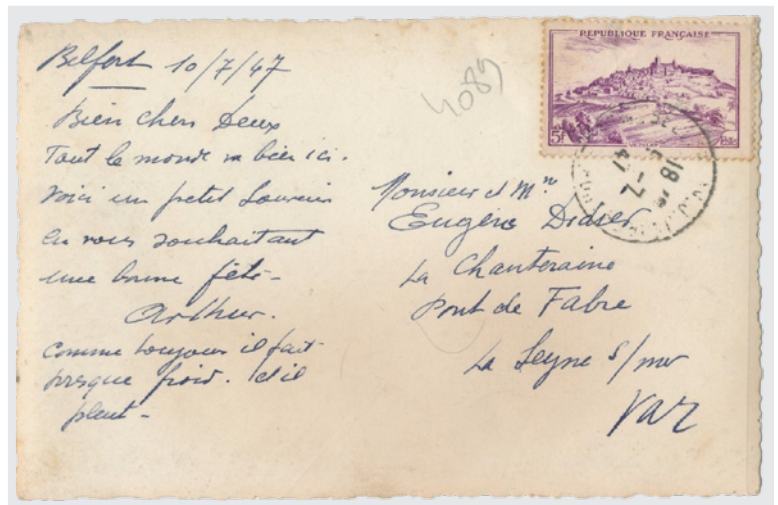 Belfort 10/7/47
Bien chers Deux
Tout le monde va bien ici.
Voici un petit Souvenir
en vous souhaitant
une bonne fête -
Arthur.
comme toujours il fait
presque froid. et il
pleut -
4089
REPUBLIQUE FRANÇAISE
5F
18
7
47
Monsieur et Mme
Eugène Didier
La Chanteraine
Pont de Fabre
La Seyne s/mer
Var